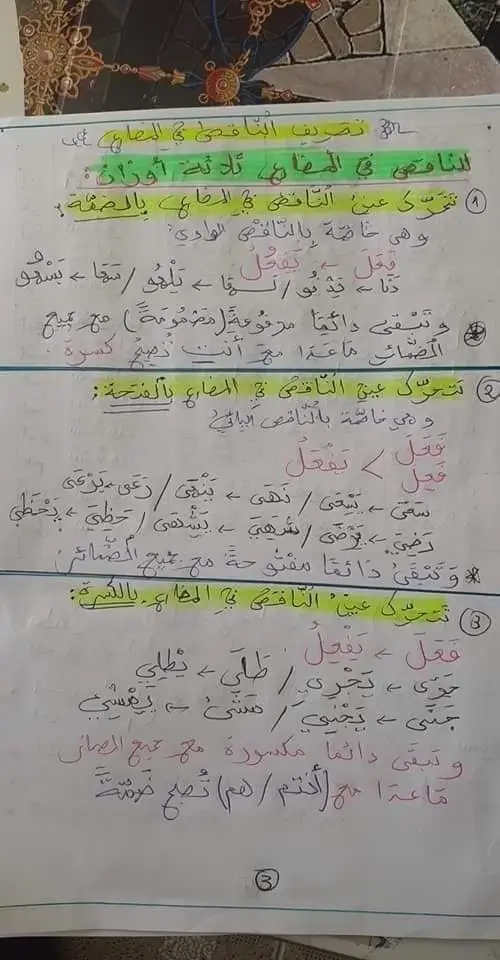 تصريف النّاقص في المضارع
الناقص في المضارع ثلاثة أوزان:
① تتحرّك عينُ النّاقص في المضارع بالضمّة:
وهي خاصّة بالنّاقص الواوي:
فَعَلَ ← يَفْعُلُ
دَنَا ← يَدْنُو / ← يَلْهُو / سَهَا ← يَسْهُو
* وتَبْقَى دائمًا مرفوعةً (مَضْمُومَةً) مع جميع
الضّمائر مَاعَدَا مع أنتِ تُصبح كسرة.
② تتحرّك عين النّاقص في المضارع بالفتحة:
وهي خاصّة بالنّاقص اليائيّ
فَعَلَ
فَعِلَ > يَفْعَلُ
سَعَى ← يَسْعَى / نَهَى ← يَنْهَى / رَعَى ← يَرْعَى
رَضِيَ ← يَرْضَى / ← / حَظِيَ ← يَحْظَى
* وَتَبْقَى دائمًا مفتوحةً مع جميع الضّمائر:
③ تَتحرّك عينُ النّاقص في المضارع بالكسرة:
فَعَلَ ← يَفْعِلُ
جَرَى ← يَجْرِي / طَلَى ← يَطْلِي
جَنَى ← يَجْنِي / مَشَى ← يَمْشِي
وتبقى دائما مكسورة مع جميع الضمائر
مَاعَدَا مع (أنتم / هم) تُصبح ضَمّةً
③